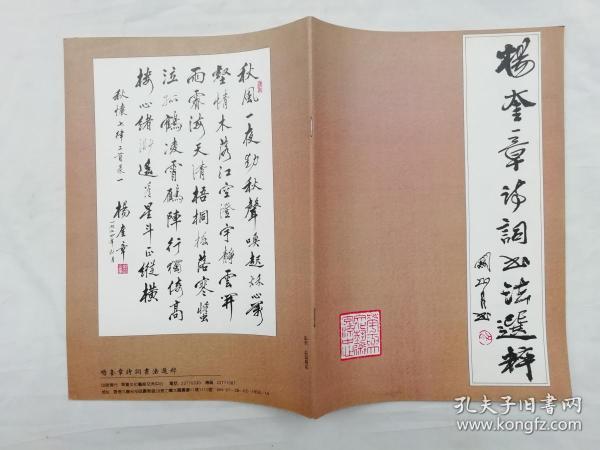 杨奎章诗詞书法選粹
關山月书
秋風一夜動秋聲喚起秋心萬
壑情木落江空澄宇靜雲開
雨霽海天清梧桐搖落寒螿
泣孤鶴凌霄鴈陣行獨倚高
樓心緒渺遙看星斗正縱橫
秋懷七律二首录一
楊奎章
楊奎章詩詞書法選粹
出版發行 電話 傳真
地址
孔夫子旧书网
www.kongfz.com